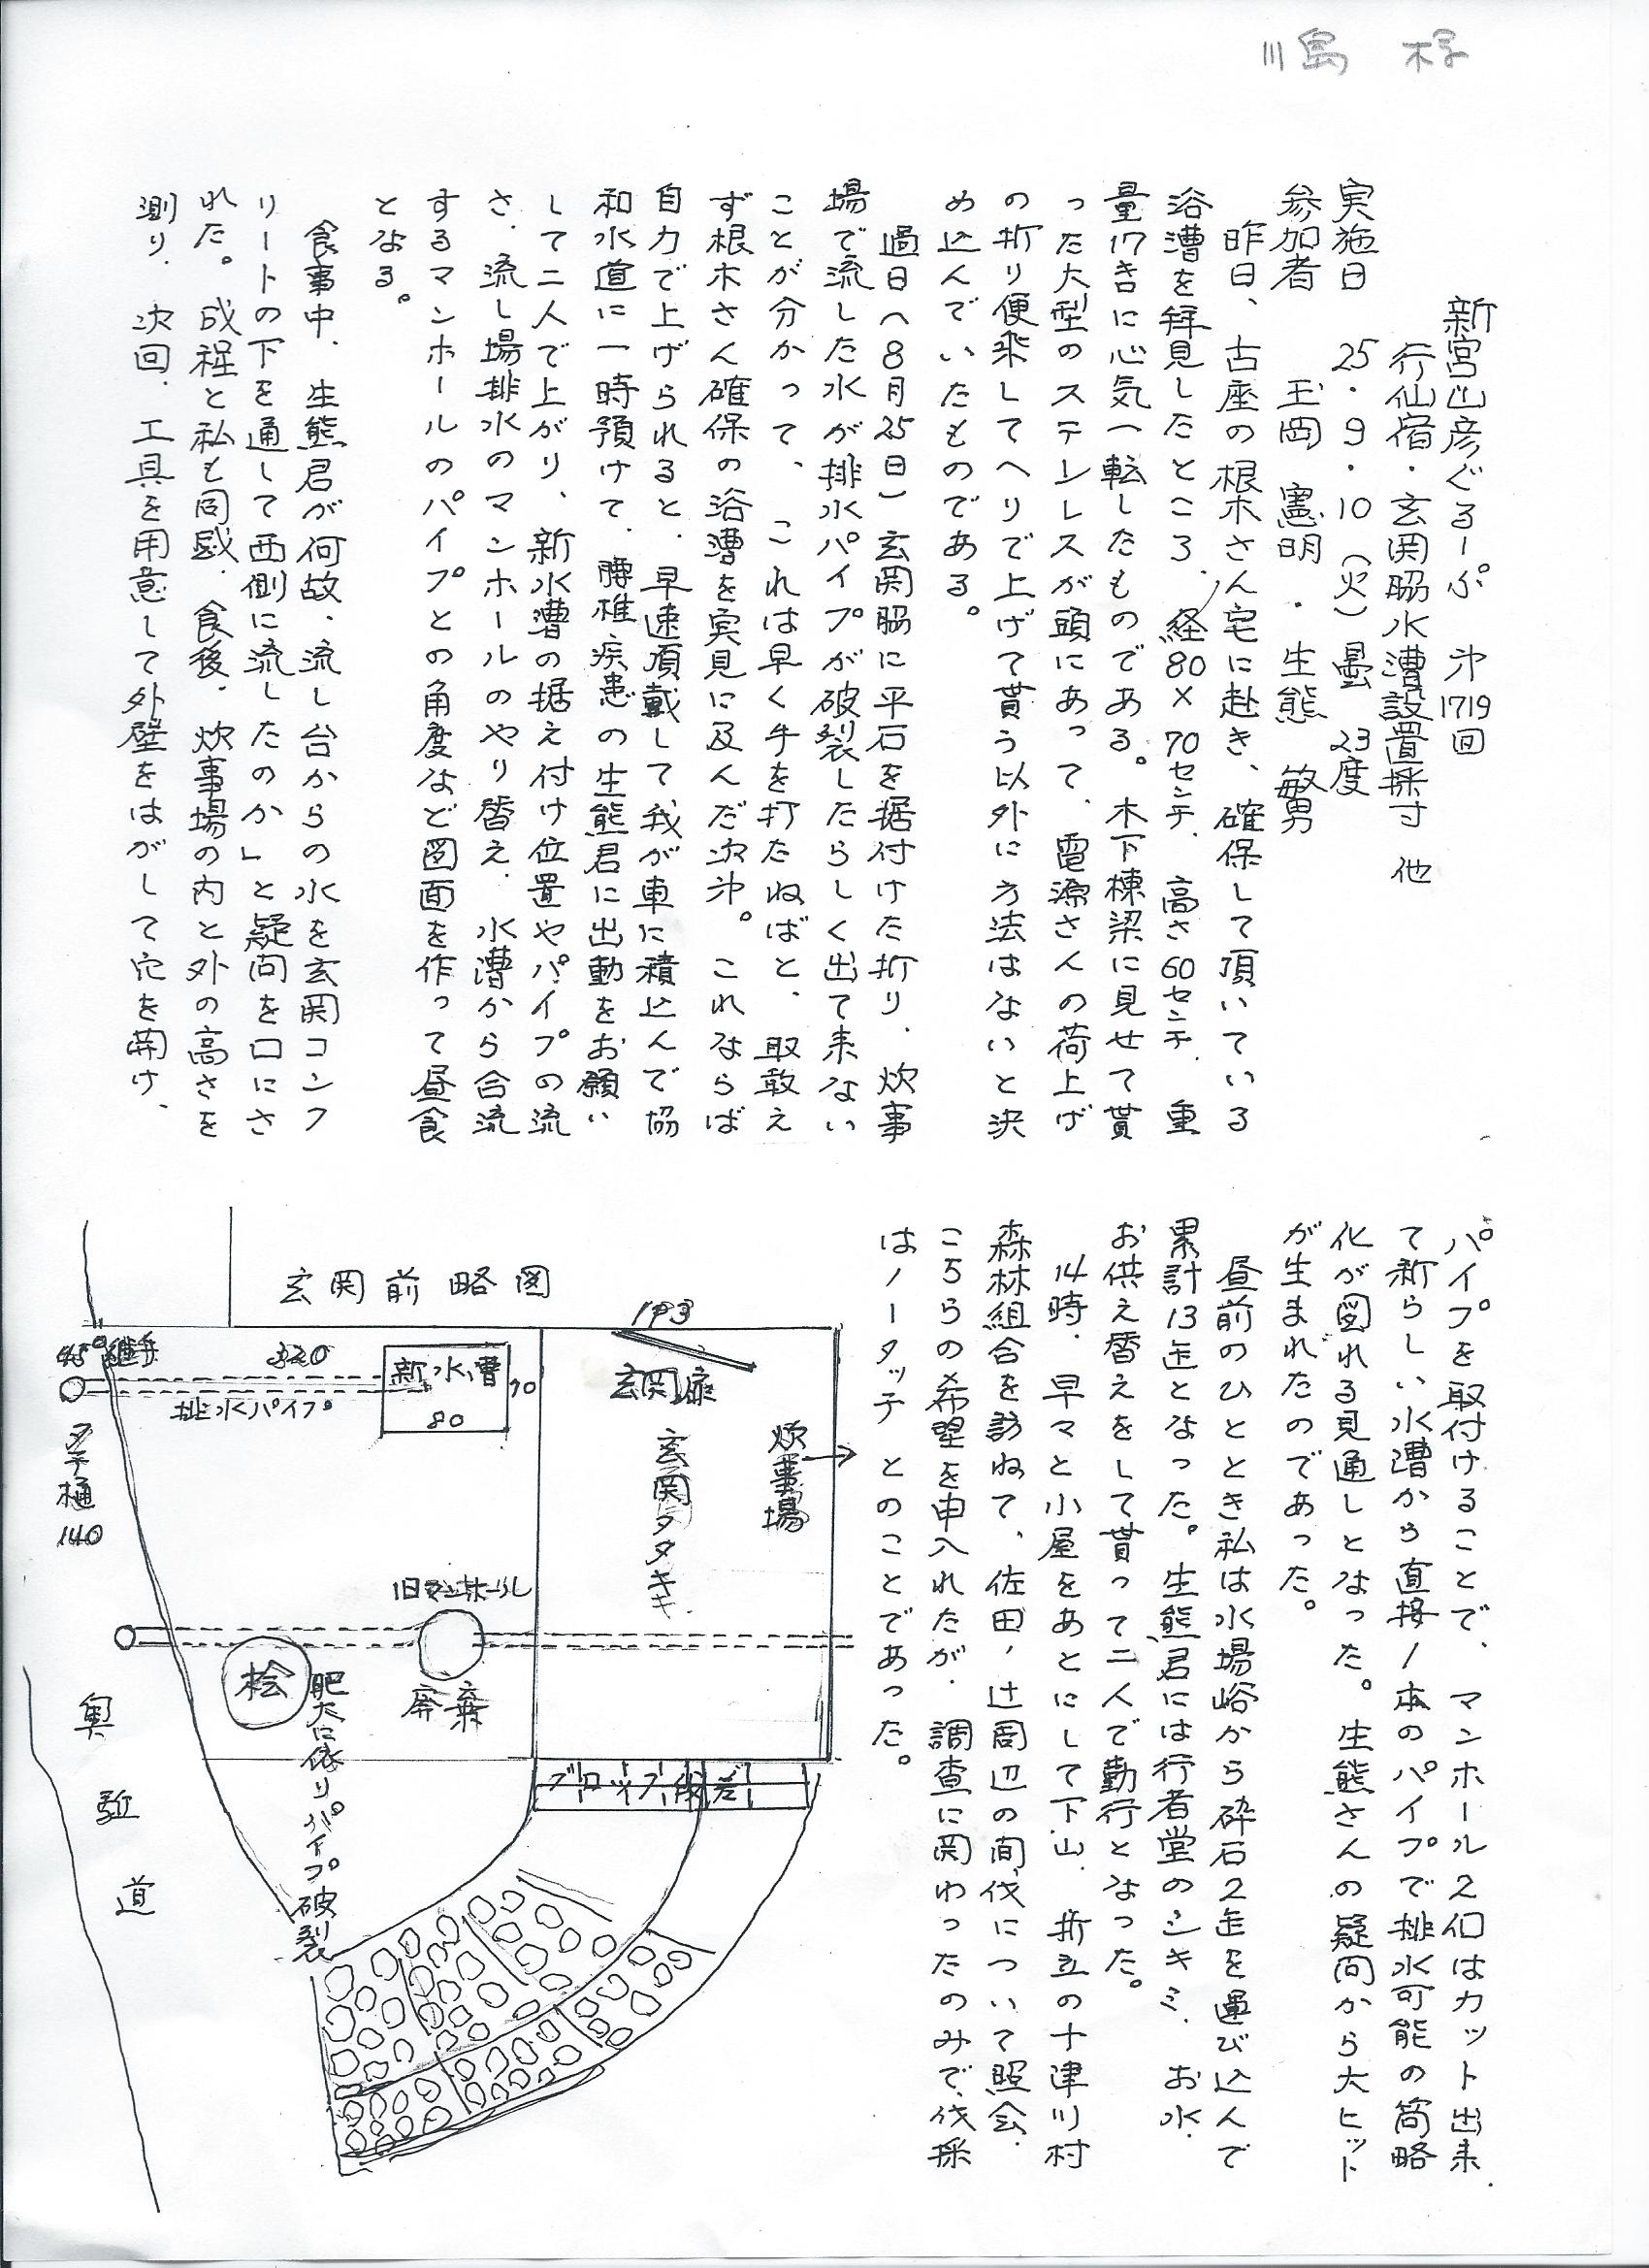 川島 様
新宮山彦ぐるーぷ 㐧1719回
行仙宿・玄関脇水漕設置採寸 他
実施日 25・9・10(火)曇 23度
参加者 玉岡 憲明 ・ 生熊 敏男
昨日、古座の根木さん宅に赴き、確保して頂いている
浴漕を拝見したところ、経80×70センチ、高さ60センチ、重
量17キロに心気一転したものである。木下棟梁に見せて貰
った大型のステンレスが頭にあって、電源さんの荷上げ
の折り便乗してヘリで上げて貰う以外に方法はないと決
め込んでいたものである。
過日(8月25日)玄関脇に平石を据付けた折り、炊事
場で流した水が排水パイプが破裂したらしく出て来ない
ことが分かって、これは早く手を打たねばと、取敢え
ず根木さん確保の浴漕を実見に及んだ次㐧。これならば
自力で上げられると、早速頂戴して我が車に積込んで協
和水道に一時預けて、腰椎疾患の生熊君に出動をお願い
して二人で上がり、新水漕の据え付け位置やパイプの流
さ、流し場排水のマンホールのやり替え、水漕から合流
するマンホールのパイプとの角度など図面を作って昼食
となる。
食事中、生熊君が何故、流し台からの水を玄関コンク
リートの下を通して西側に流したのか」と疑問を口にさ
れた。成程と私も同感、食後、炊事場の内と外の高さを
測り、次回、工具を用意して外壁をはがして穴を開け、
パイプを取付けることで、マンホール2個はカット出来、
て新らしい水漕から直接1本のパイプで排水可能の簡略
化が図れる見通しとなった。生熊さんの疑問から大ヒット
が生まれたのであった。
昼前のひととき私は水場峪から砕石2缶を運び込んで
累計13缶となった。生熊君には行者堂のシキミ、お水、
お供え替えをして貰って二人で勤行となった。
14時、早々と小屋をあとにして下山、折立の十津川村
森林組合を訪ねて、佐田ノ辻周辺の間伐について照会、
こちらの希望を申入れたが、調査に関わったのみで、伐採
はノータッチとのことであった。
玄関前略図
193
玄関扉
炊事場
玄関タタキ
45°継手
320
新水漕
70
80
排水パイプ
タテ樋
140
旧マンホール
廃棄
桧
肥大に依りパイプ破裂
ブロック段差
奥駈道